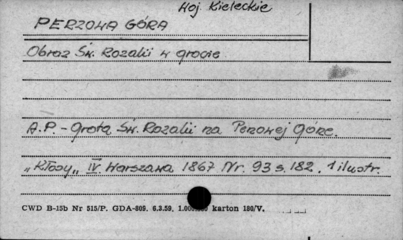 Woj. Kieleckie
PERZOWA GÓRA
Obraz Św. Rozalii w grocie
A.P. - Grota Św. Rozalii na Perzowej Górze.
"Kłosy" IV Warszawa 1867 Nr. 93 s. 182. 1 ilustr.
CWD B-15b Nr 515/P. GDA-809. 6.3.59. karton 180/V.